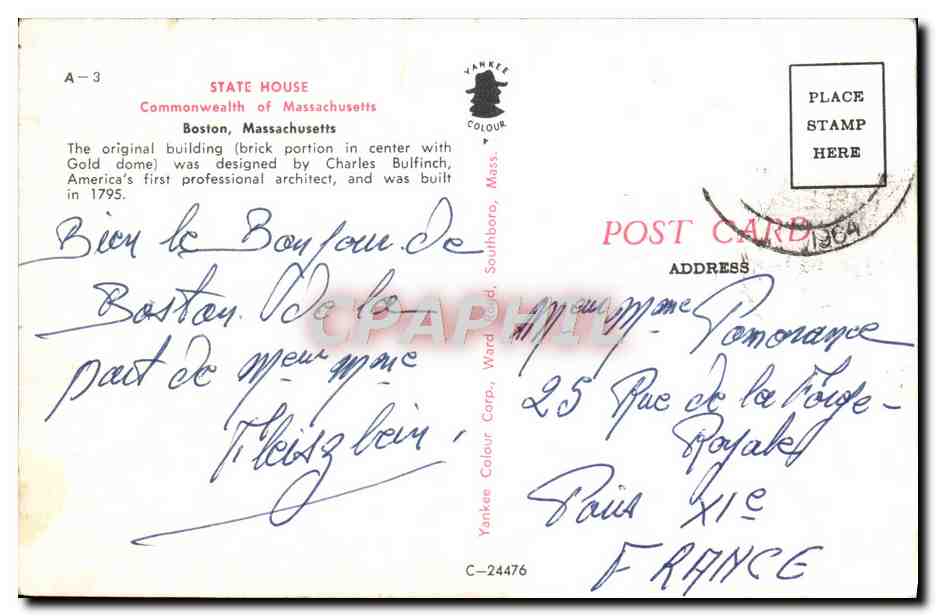 A-3
STATE HOUSE
Commonwealth of Massachusetts
Boston, Massachusetts
The original building (brick portion in center with
Gold dome) was designed by Charles Bulfinch,
America's first professional architect, and was built
in 1795.
Bien le Bonjour de
Boston. de la
part de Meur Mme
Fleiszbein.
YANKEE
COLOUR
Yankee Colour Corp., Ward Road, Southboro, Mass.
C-24476
PLACE
STAMP
HERE
1964
POST CARD
ADDRESS
Meur Mme Pomorance
25 Rue de la Folie-
Royale
Paris XIe
FRANCE
CPAPHIL